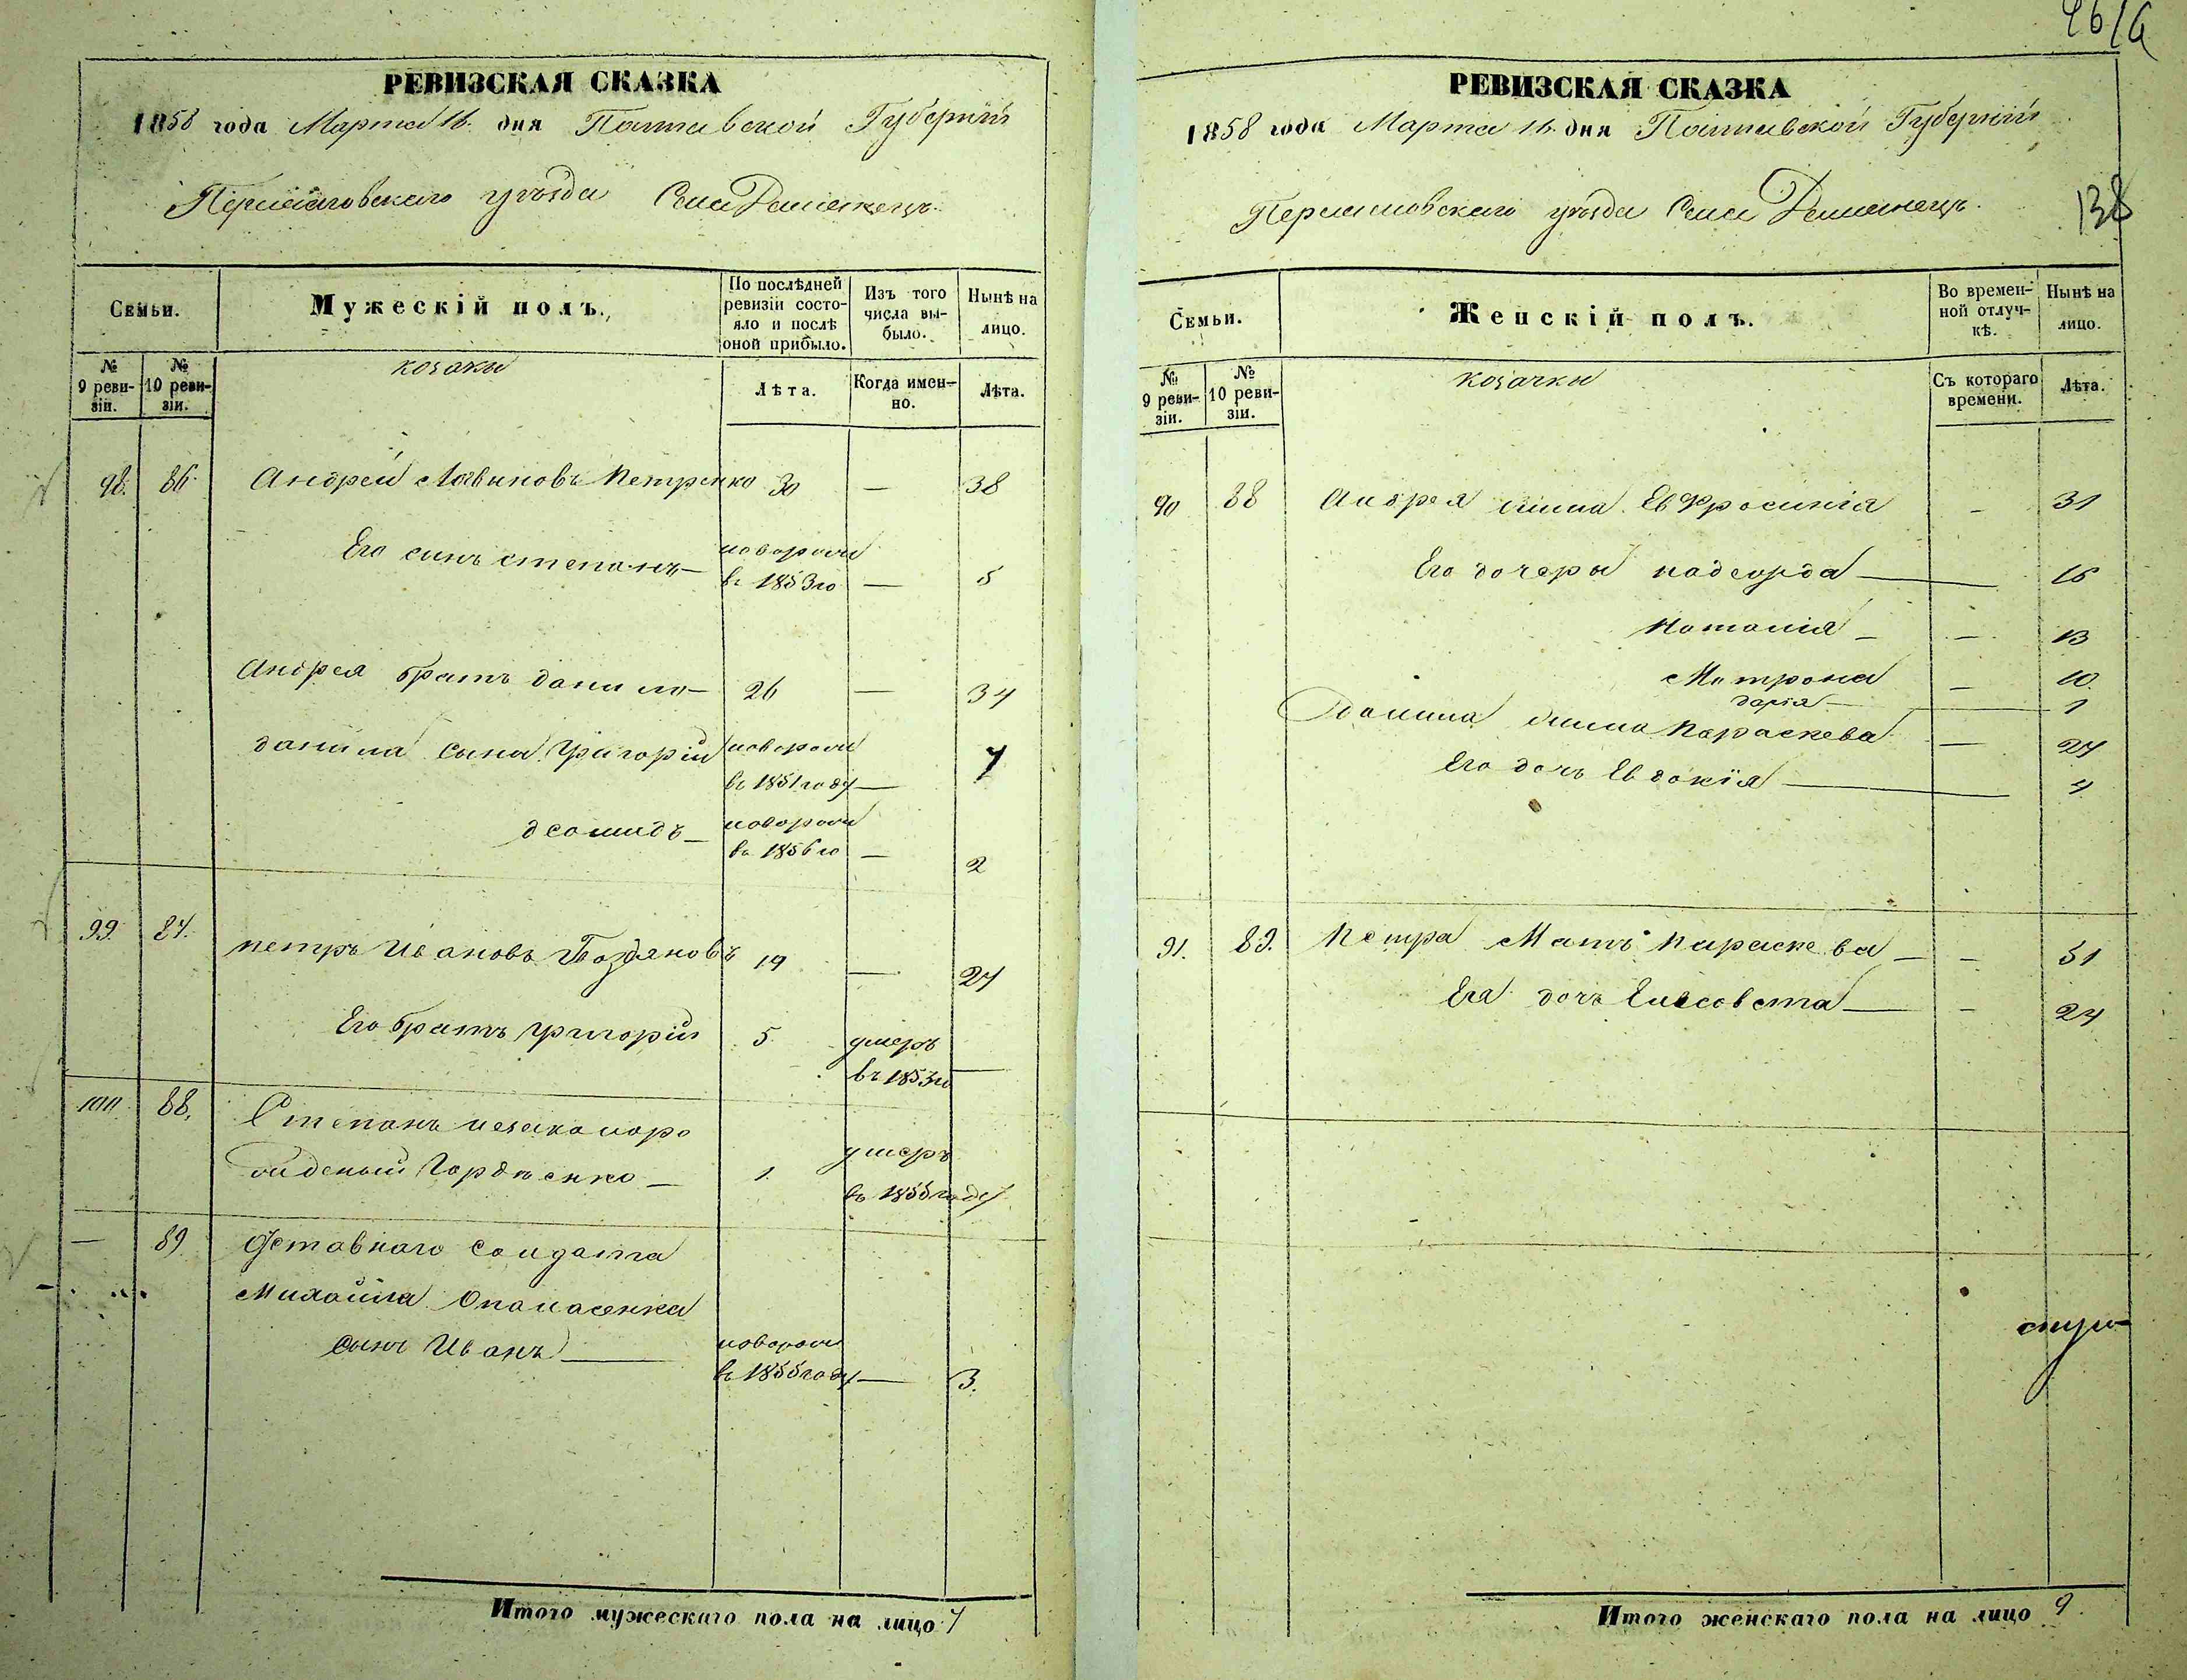 РЕВИЗСКАЯ СКАЗКА
1858 года Марта 16. дня Полтавской Губерніи
Переяславскаго уѣзда Села
Семьи.
Мужескій полъ.
По послѣдней ревизіи состояло и послѣ оной прибыло.
Изъ того числа выбыло.
Нынѣ на лицо.
№ 9 ревизіи.
№ 10 ревизіи.
козаки
Лѣта.
Когда именно.
Лѣта.
98. 86. Андрей Логвиновъ Петренко 30 — 38
Его сынъ степанъ — новорож
въ 1853 го — 5
Андрея братъ данило — 26 — 34
данила сына Григорій новорож 7
въ 1851 году —
деомидъ — новорож
въ 1856 го — 2
99. 87. петръ Ивановъ 19 — 27
Его братъ григорій 5. умеръ
въ 1853 го —
100. 88. Степанъ незаконоро
жденый Гордѣенко — 1. умеръ
въ 1855 году
— 89. Отставнаго солдата
Михайла Опанасенка
сынъ Иванъ — новорож
въ 1855 году — 3.
Итого мужескаго пола на лицо 7
96/а
РЕВИЗСКАЯ СКАЗКА
1858 года Марта 16. дня Полтавской Губерніи
Переяславскаго уѣзда Села
138
Семьи.
Женскій полъ.
Во временной отлучкѣ.
Нынѣ на лицо.
№ 9 ревизіи.
№ 10 ревизіи.
козачки
Съ котораго времени.
Лѣта.
90 88 Андрея жина Евфросинія — 31
Его дочеры надежда — 16
Наталія — — 13
Матрона — 10.
дарія — 1
Данила жина Параскева — 27
Его дочь Евдокія — 4
91. 89. Петра Мать Параскева — — 51
Его дочь Елисовета — — 24
Итого женскаго пола на лицо 9.